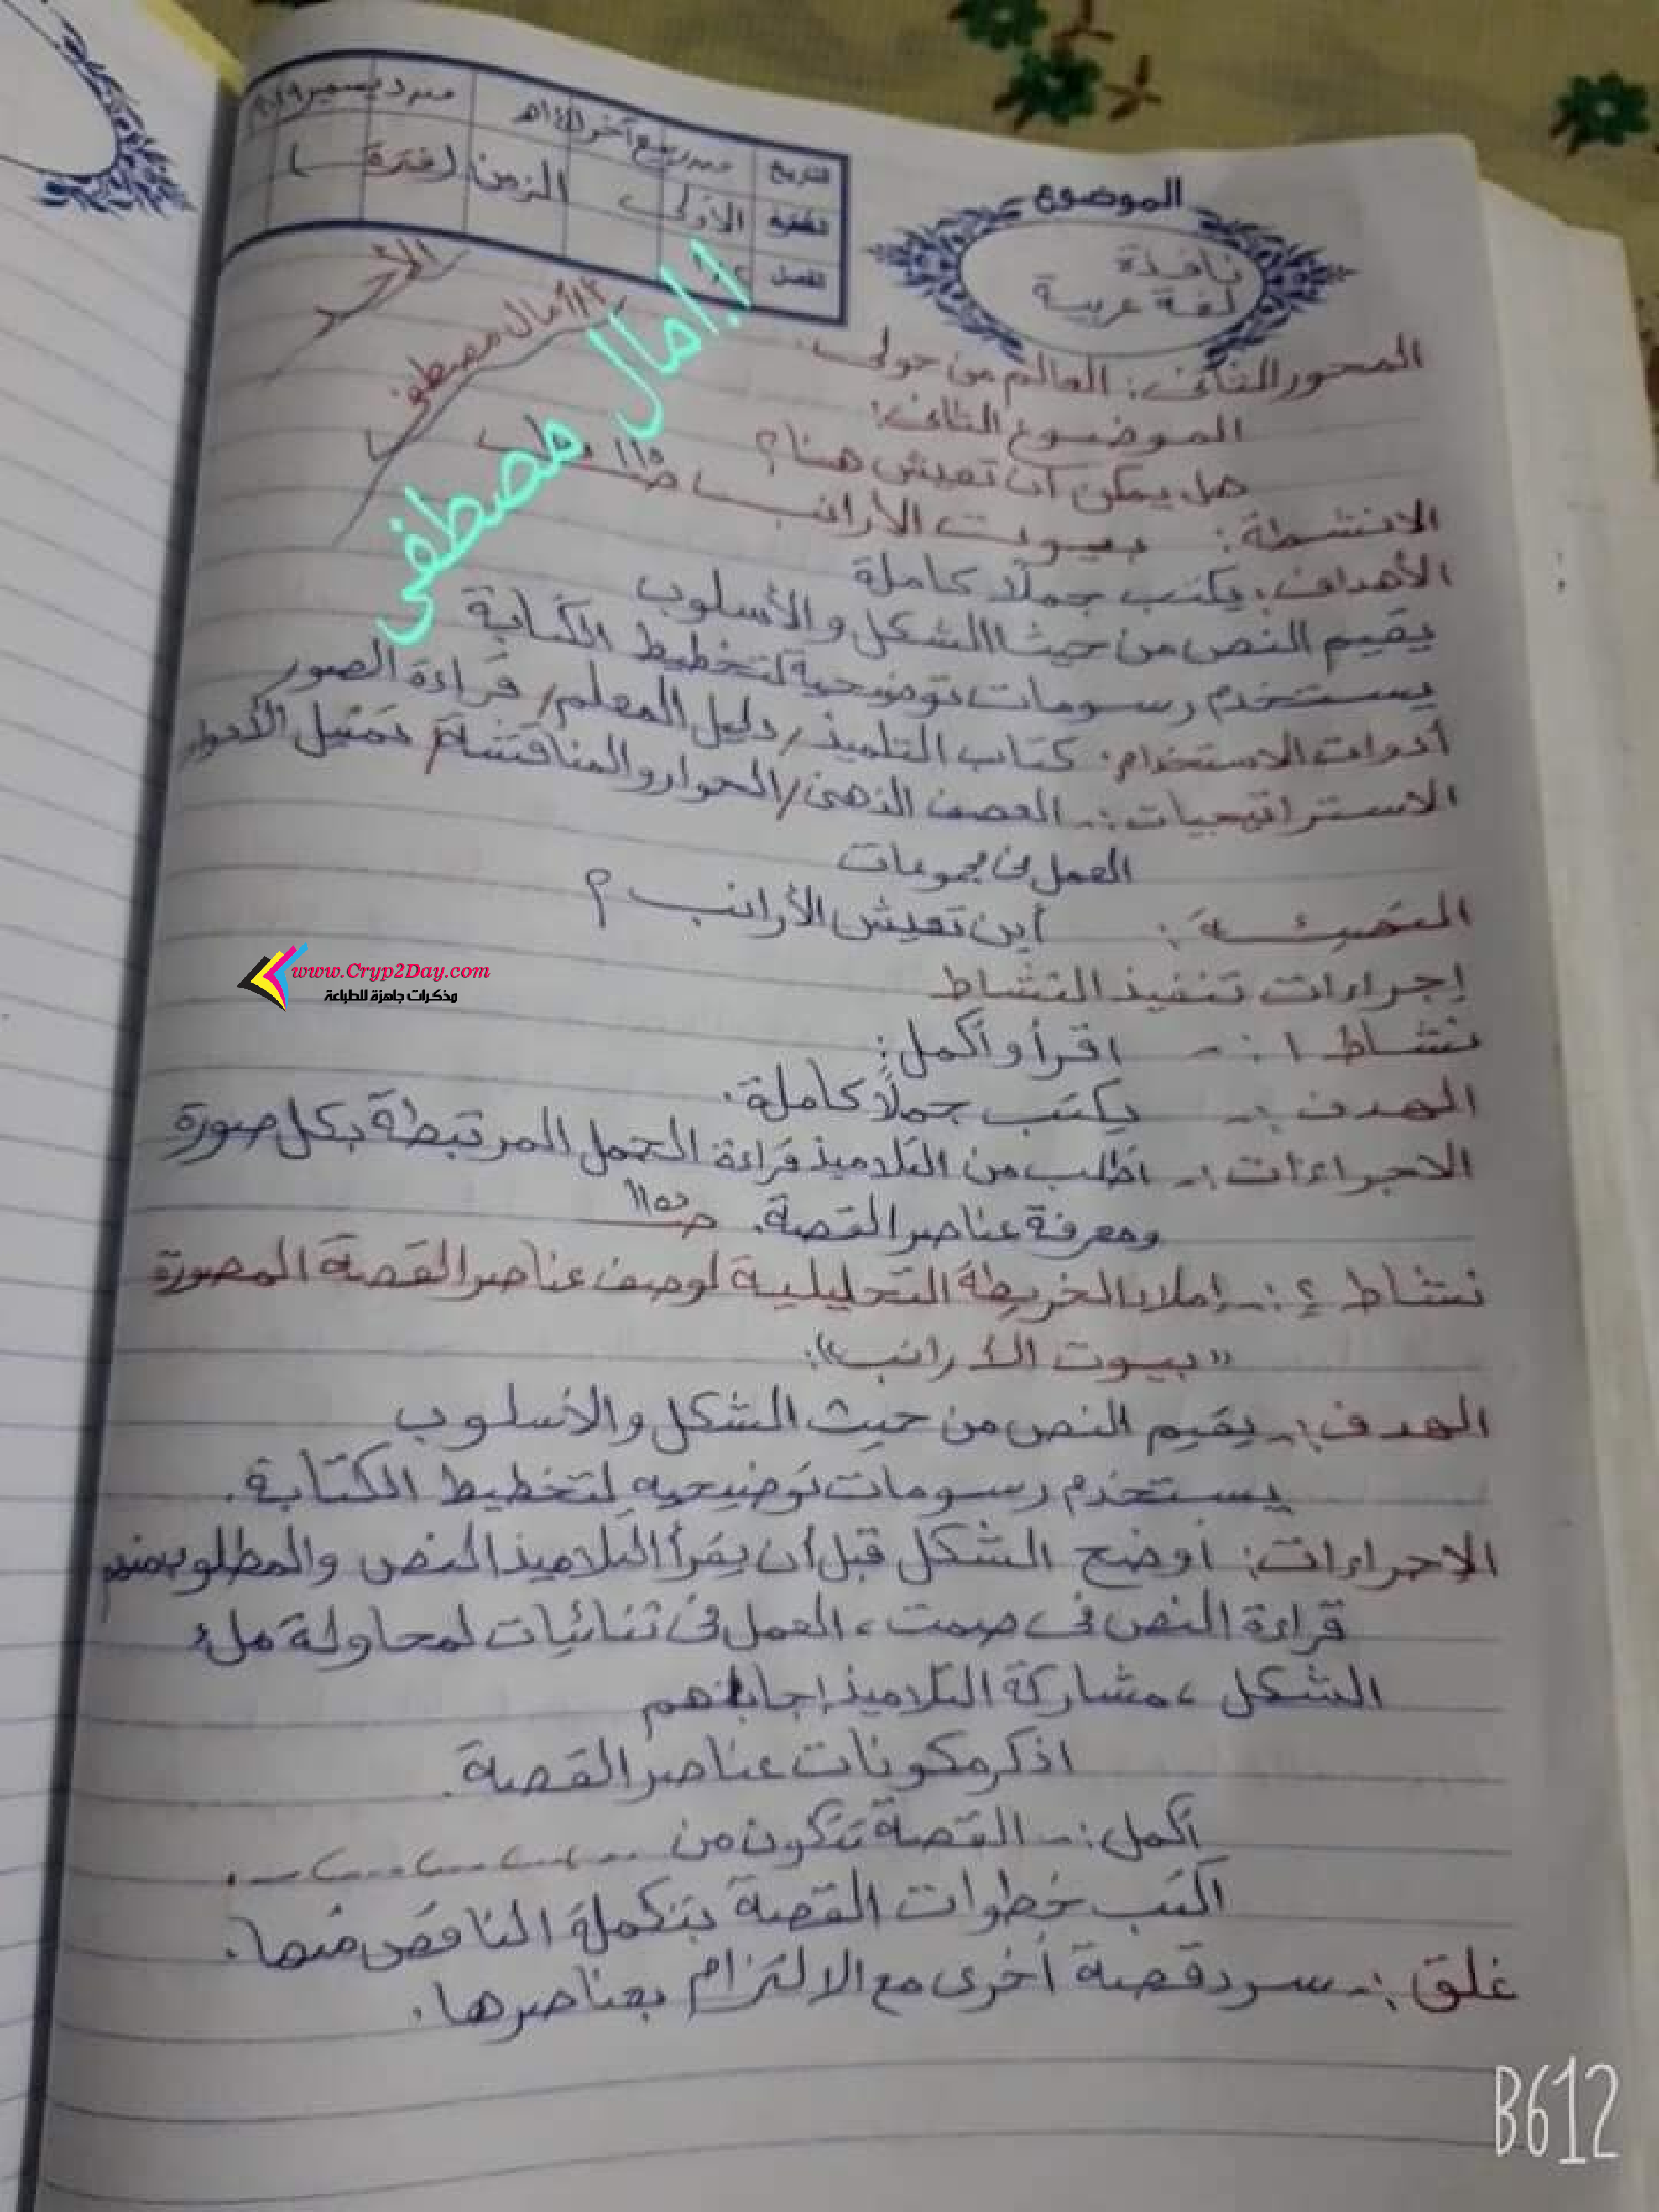 الموضوع
نافذة
لغة عربية
التاريخ من ربيع آخر ١٤٤١هـ من ديسمبر ٢٠١٩
الفترة الأولى الزمن (فترة)
الفصل
الأحد
أ/ أمال مصطفى
ا.امال مصطفى
المحور الثانى: العالم من حولى.
الموضوع الثانى:
هل يمكن أن تعيش هنا؟
الانشطة: بيوت الأرانب ص ١١٥
الأهداف: يكتب جملًا كاملة
يقيم النص من حيث الشكل والأسلوب
يستخدم رسومات توضيحية لتخطيط الكتابة
أدوات الاستخدام: كتاب التلميذ/ دليل المعلم/ قراءة الصور
الاستراتيجيات:- العصف الذهنى/ الحوار والمناقشة/ تمثيل الأدوار
العمل فى مجموعات
التهيئة: أين تعيش الأرانب؟
www.Cryp2Day.com
مذكرات جاهزة للطباعة
إجراءات تنفيذ النشاط
نشاط ١:- اقرأ وأكمل:
الهدف:- يكتب جملًا كاملة.
الاجراءات:- اطلب من التلاميذ قراءة الجمل المرتبطة بكل صورة
ومعرفة عناصر القصة. ص ١١٥
نشاط ٢:- املأ الخريطة التحليلية لوصف عناصر القصة المصورة
«بيوت الأرانب».
الهدف:- يقيم النص من حيث الشكل والأسلوب
يستخدم رسومات توضيحيه لتخطيط الكتابة.
الإجراءات: أوضح الشكل قبل أن يقرأ التلاميذ النص والمطلوب منهم
قراءة النص فى صمت، العمل فى ثنائيات لمحاولة ملء
الشكل، مشاركة التلاميذ إجاباتهم
اذكر مكونات عناصر القصة.
أكمل:- القصة تتكون من
اكتب خطوات القصة بتكملة الناقص منها.
غلق:- سرد قصة أخرى مع الالتزام بعناصرها.
B612